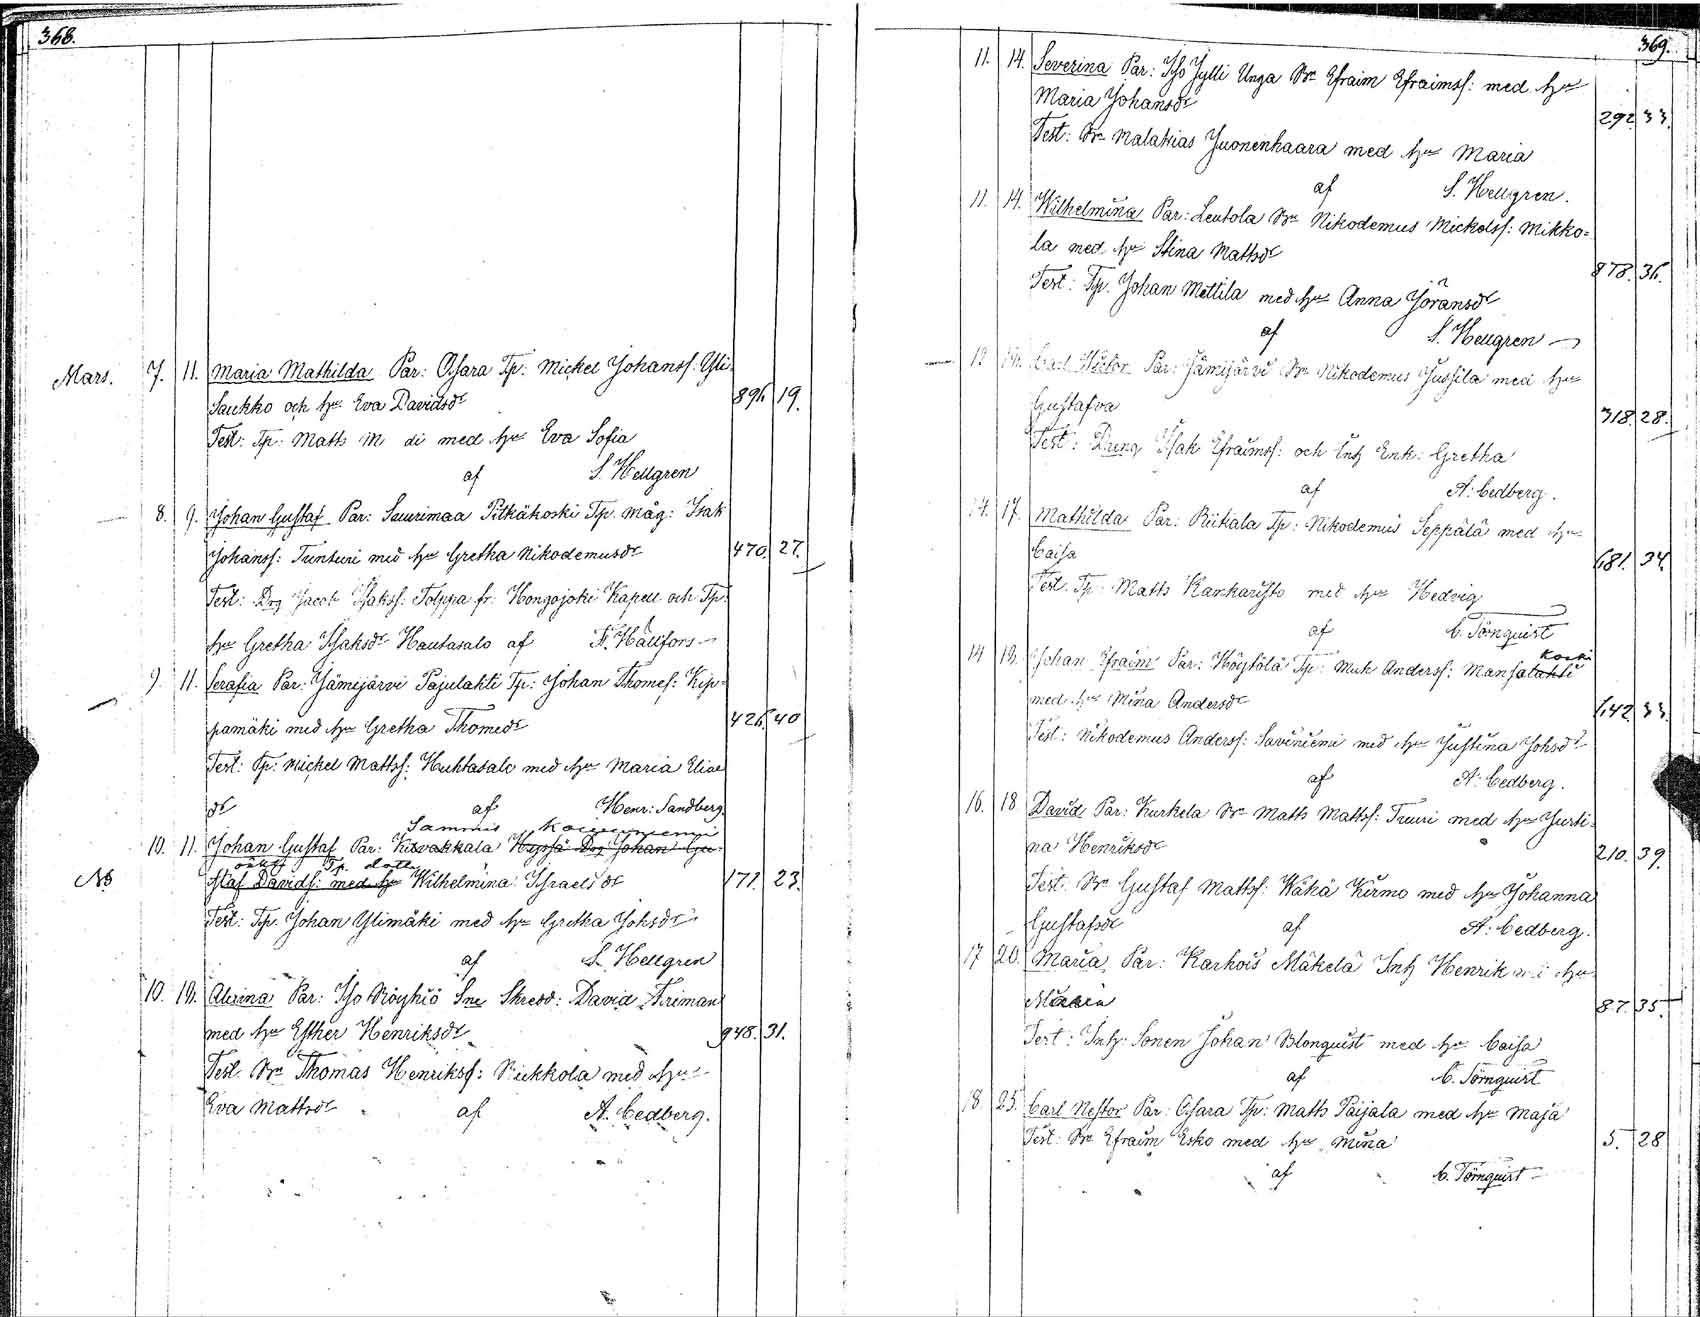 368.
Mars. 7. 11. Maria Mathilda Par: Osara Tp: Mickel Johanss: Yli-
Saukko och hu Eva Davidsdr 896 19.
Test: Tp: Matts di med hu Eva Sofia
af S. Hellgren
8. 9. Johan Gustaf Par: Suurimaa Pitkäkoski Tp. måg: Isak
Johanss: Tunturi med hu Gretha Nikodemusdr 470. 27.
Test: Drg Jacob Isakss: Tolppa fr: Hongojoki Kapell och Tp:
hu Gretha Isaksdr Hautasalo af F. Hällfors
9. 11. Serafia Par: Jämijärvi Pajulahti Tp: Johan Thomes: Kip-
pamäki med hu Gretha Thomedr 426. 40
Test: Tp: Mickel Mattss: Huhtasalo med hu Maria Eliae
dr af Henr: Sandberg.
Sammis
10. 11. Johan Gustaf Par: Hyssä Drg Johan Gu-
oäkta Tp. dotter
NB staf Davids: med hu Wilhelmina Israelsdr 171. 23.
Test: Tp. Johan Ylimäki med hu Gretha Johsdr
af S. Hellgren
10. 12. Alexina Par: Iso Röyhiö Sne Skredd: David Friman
med hu Esther Henriksdr 948. 31.
Test. Bn Thomas Henrikss: Riekkola med hu
Eva Mattsdr af A. Cedberg.
369.
11. 14. Severina Par: Iso Jylli Unga Bn Efraim Efraimss: med hu
Maria Johansdr 292. 33.
Test: Bn Malakias Juonenhaara med hu Maria
af S. Hellgren.
11. 14. Wilhelmina Par: Leutola Bn Nikodemus Mickelss: Mikko-
la med hu Stina Mattsdr 878. 36.
Test: Tp. Johan Mettila med hu Anna Jöransdr
af S. Hellgren
Carl Victor Par: Jämijärvi Bn Nikodemus Jussila med hu
Gustafva 318. 28.
Test: Dreng Isak Efraimss: och Inh Enk: Gretha
af A: Cedberg.
14. 17. Mathilda Par: Riitiala Tp: Nikodemus Seppälä med hu
Caisa 681. 34.
Test. Tp: Matts Kankaristo med hu Hedvig
af C. Törnquist
koski
14 Johan Efraim Par: Höytölä Tp: Mich Anderss: Mansalahti
med hu Mina Andersdr 642. 33.
Test: Nikodemus Anderss: Saviniemi med hu Justina Johsdr
af A: Cedberg.
16. 18 David Par: Kurkela Bn Matts Mattss: Truuri med hu Justi-
na Henriksdr 210. 39.
Test: Bn Gustaf Mattss: Wähä Kirmo med hu Johanna
Gustafsdr af A: Cedberg.
17 20. Maria Par: Karhois Mäkelä Inh Henrik med hu
Maria 87. 35.
Test: Inh: Sonen Johan Blonquist med hu Caisa
af C. Törnquist
18. 25. Carl Nestor Par: Osara Tp: Matts Paijala med hu Maja
Test: Bn Efraim Esko med hu Mina 5. 28
af C. Törnquist